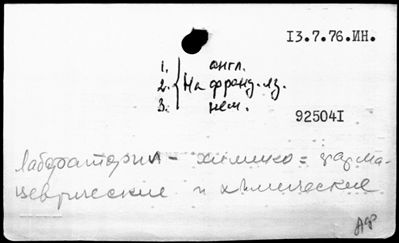 13.7.76.ИН.
1. англ.
2. На франц. яз.
3. нем.
925041
Лаборатории - химико = фарма-
цевтические и химические
АФ